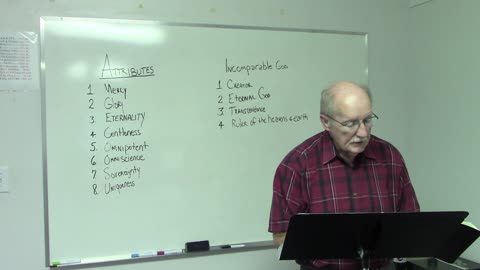 ATTRIBUTES
1 Mercy
2 Glory
3 ETERNALITY
4 Gentleness
5. OMNIPOTENT
6 OMNIScience
7 Sovereignty
8. Uniqueness
INCOMPARABLE GOD
1 CREATOR
2 ETERNAL GOD
3 TRANSCENDENCE
4 RULER of the heavens & earth